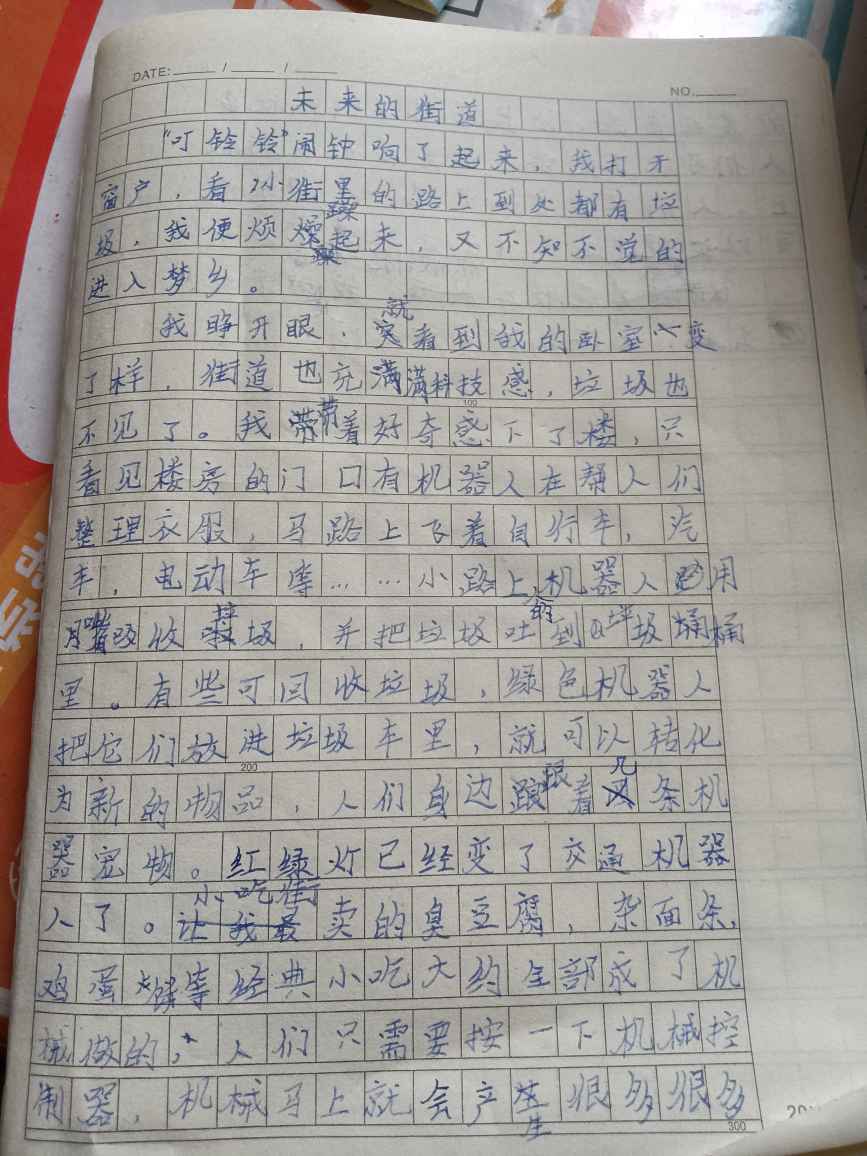 DATE: ____ / ____ / ____
NO. ____
未来的街道
“叮铃铃”闹钟响了起来，我打开
窗户，看小街里的路上到处都有垃
圾，我便烦躁起来，又不知不觉的
进入梦乡。
我睁开眼，就看到我的卧室变
了样，街道也充满满科技感，垃圾也
100
不见了。我带着好奇感下了楼，只
看见楼房的门口有机器人在帮人们
整理衣服，马路上飞着自行车，汽
车，电动车等……小路上，机器人用
嘴吸收垃圾，并把垃圾吐到垃圾桶
里。有些可回收垃圾，绿色机器人
把它们放进垃圾车里，就可以转化
200
为新的物品，人们身边跟着几条机
器宠物。红绿灯已经变了交通机器
人了。小吃街卖的臭豆腐，杂面条，
鸡蛋馍等经典小吃大约全部成了机
械做的，人们只需要按一下机械控
制器，机械马上就会产生很多很多
300